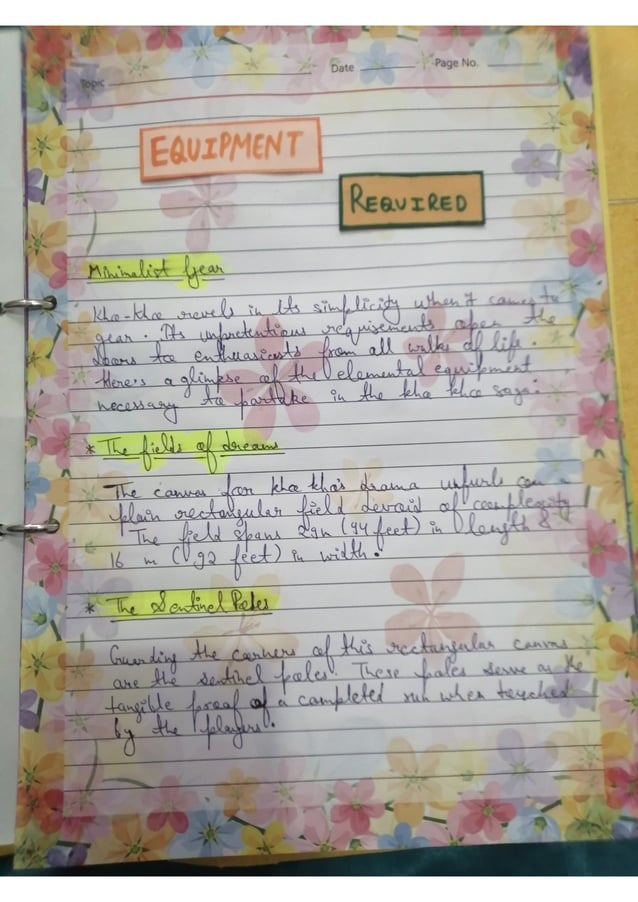 Topic
Date
Page No.
EQUIPMENT
REQUIRED
Minimalist Gear
Kho-kho revels in its simplicity when it comes to
gear. Its unpretentious requirements open the
doors to enthusiasts from all walks of life.
Here's a glimpse of the elemental equipment
necessary to partake in the kho kho saga:
* The fields of dreams
The canvas for kho kho's drama unfurls on a
plain rectangular field devoid of complexity
The field spans (94 feet) in length &
16 m ( 92 feet) in width.
* The Sentinel Poles
Guarding the corners of this rectangular canvas
are the sentinel poles. These poles serve as the
tangible proof of a completed run when touched
by the players.